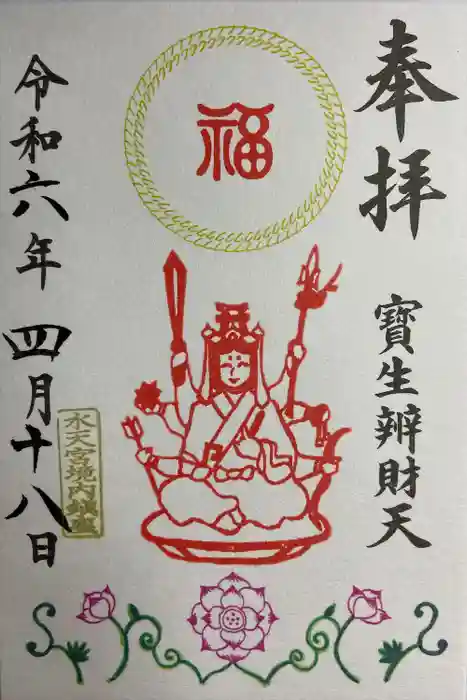 奉拝
寶生辨財天
福
令和六年 四月十八日
水天宮境内鎮座